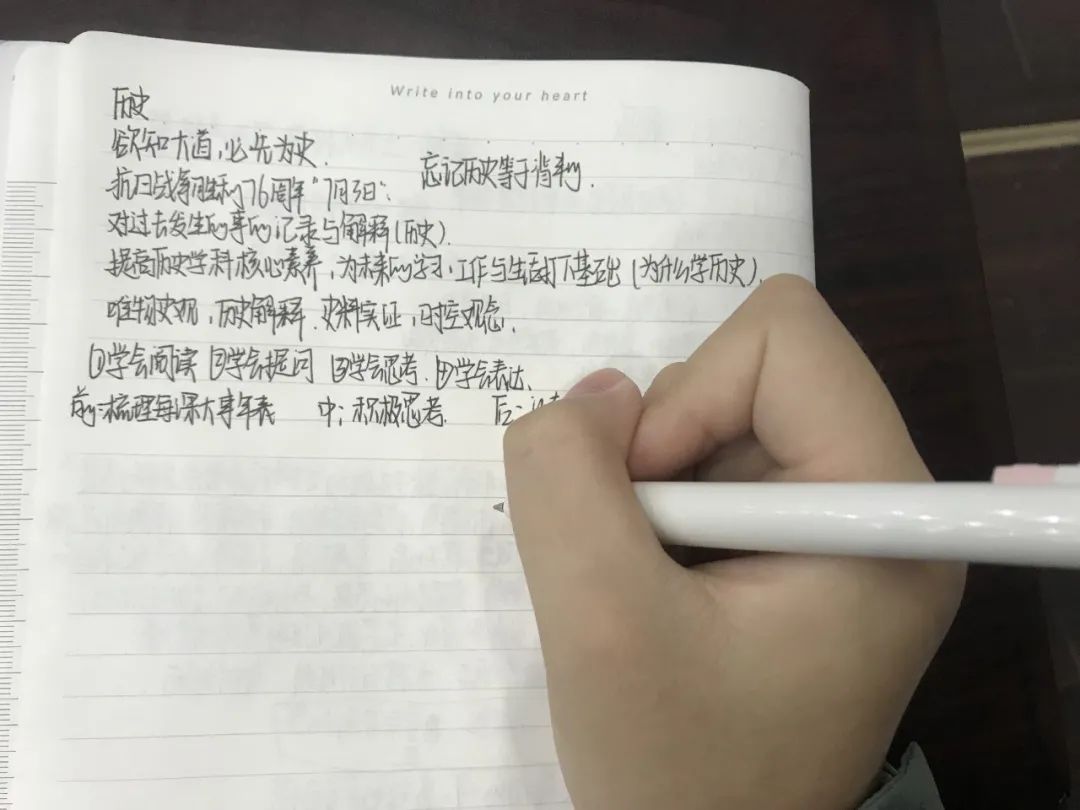 Write into your heart
历史
欲知大道,必先为史.
忘记历史等于背叛.
抗日战争胜利76周年"7月3日:
对过去发生的事的记录与解释(历史).
提高历史学科核心素养,为未来的学习,工作与生活打下基础(为什么学历史).
唯物史观,历史解释.史料实证,时空观念.
①学会阅读 ②学会提问 ③学会思考. ④学会表达.
前:梳理每课大事年表 中:积极思考.